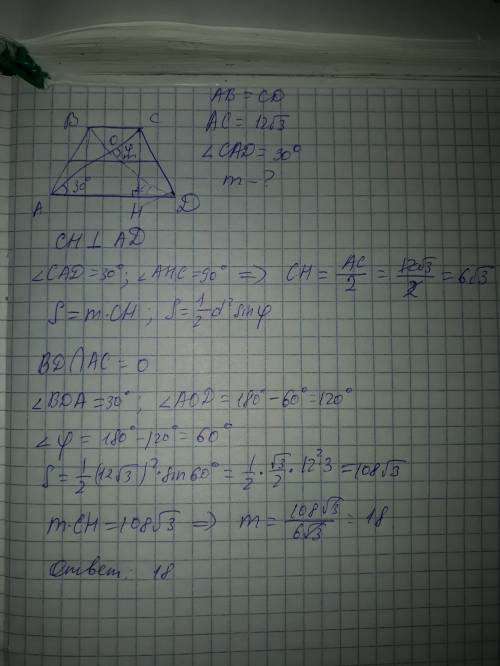 AB = CD
AC = 12√3
∠CAD = 30°
m - ?
B C
O φ
30°
A H D
CH ⊥ AD
∠CAD = 30°; ∠AHC = 90° => CH = AC/2 = 12√3/2 = 6√3
S = m·CH; S = 1/2 d² sin φ
BD ⋂ AC = O
∠BDA = 30°; ∠AOD = 180° - 60° = 120°
∠φ = 180° - 120° = 60°
S = 1/2 (12√3)² · sin 60° = 1/2 · √3/2 · 12² · 3 = 108√3
m·CH = 108√3 => m = 108√3/6√3 = 18
Ответ: 18